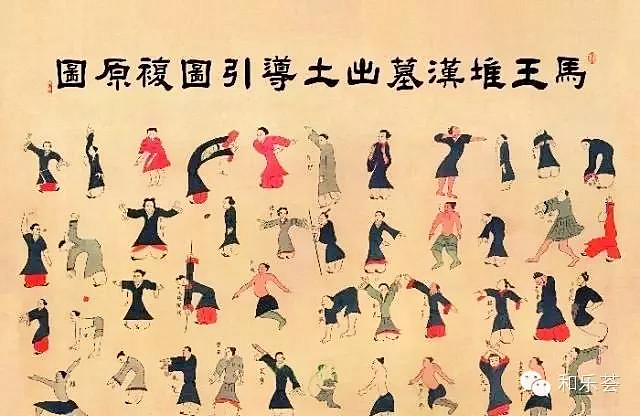 馬王堆漢墓出土導引圖複原圖
和乐荟